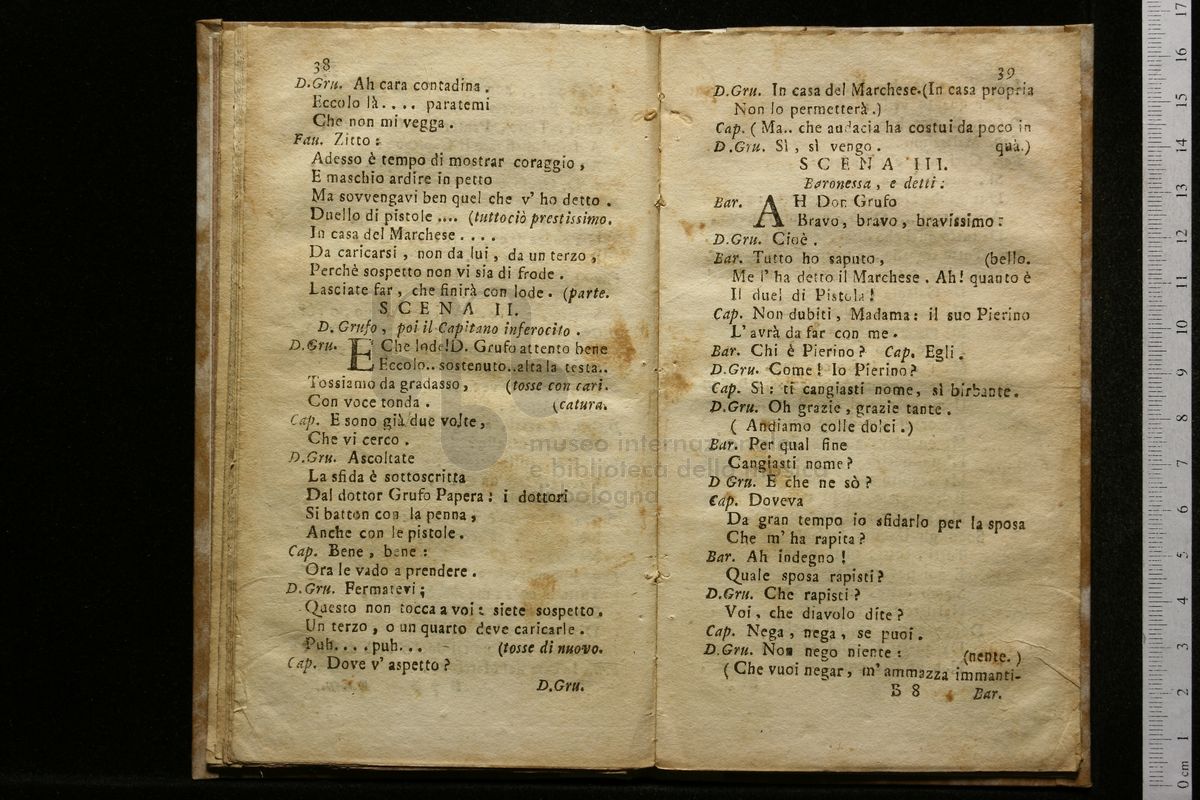 38
D.Gru. Ah cara contadina.
Eccolo là.... paratemi
Che non mi vegga.
Fau. Zitto:
Adesso è tempo di mostrar coraggio,
E maschio ardire in petto
Ma sovvengavi ben quel che v' ho detto.
Duello di pistole .... (tuttociò prestissimo.
In casa del Marchese....
Da caricarsi, non da lui, da un terzo,
Perchè sospetto non vi sia di frode.
Lasciate far, che finirà con lode. (parte.
SCENA II.
D. Grufo, poi il Capitano inferocito.
D.Gru. E Che lode! D. Grufo attento bene
Eccolo.. sostenuto.. alta la testa..
Tossiamo da gradasso, (tosse con cari.
Con voce tonda. (catura.
Cap. E sono già due volte,
Che vi cerco.
D.Gru. Ascoltate
La sfida è sottoscritta
Dal dottor Grufo Papera: i dottori
Si batton con la penna,
Anche con le pistole.
Cap. Bene, bene:
Ora le vado a prendere.
D.Gru. Fermatevi;
Questo non tocca a voi: siete sospetto.
Un terzo, o un quarto deve caricarle.
Puh.... puh... (tosse di nuovo.
Cap. Dove v' aspetto?
D.Gru.
39
D.Gru. In casa del Marchese.(In casa propria
Non lo permetterà.)
Cap. (Ma.. che audacia ha costui da poco in
D.Gru. Sì, sì vengo. quà.)
SCENA III.
Baronessa, e detti:
Bar. AH Don Grufo
Bravo, bravo, bravissimo:
D.Gru. Cioè.
Bar. Tutto ho saputo, (bello.
Me l' ha detto il Marchese. Ah! quanto è
Il duel di Pistola!
Cap. Non dubiti, Madama: il suo Pierino
L' avrà da far con me.
Bar. Chi è Pierino? Cap. Egli.
D.Gru. Come! Io Pierino?
Cap. Sì: ti cangiasti nome, sì birbante.
D.Gru. Oh grazie, grazie tante.
( Andiamo colle dolci.)
Bar. Per qual fine
Cangiasti nome?
D Gru. E che ne sò?
Cap. Doveva
Da gran tempo io sfidarlo per la sposa
Che m' ha rapita?
Bar. Ah indegno!
Quale sposa rapisti?
D.Gru. Che rapisti?
Voi, che diavolo dite?
Cap. Nega, nega, se puoi.
D.Gru. Non nego niente: (nente.)
(Che vuoi negar, m' ammazza immanti-
B 8 Bar.
museo internazionale
e biblioteca della musica
di bologna
0 cm 1 2 3 4 5 6 7 8 9 10 11 12 13 14 15 16 17